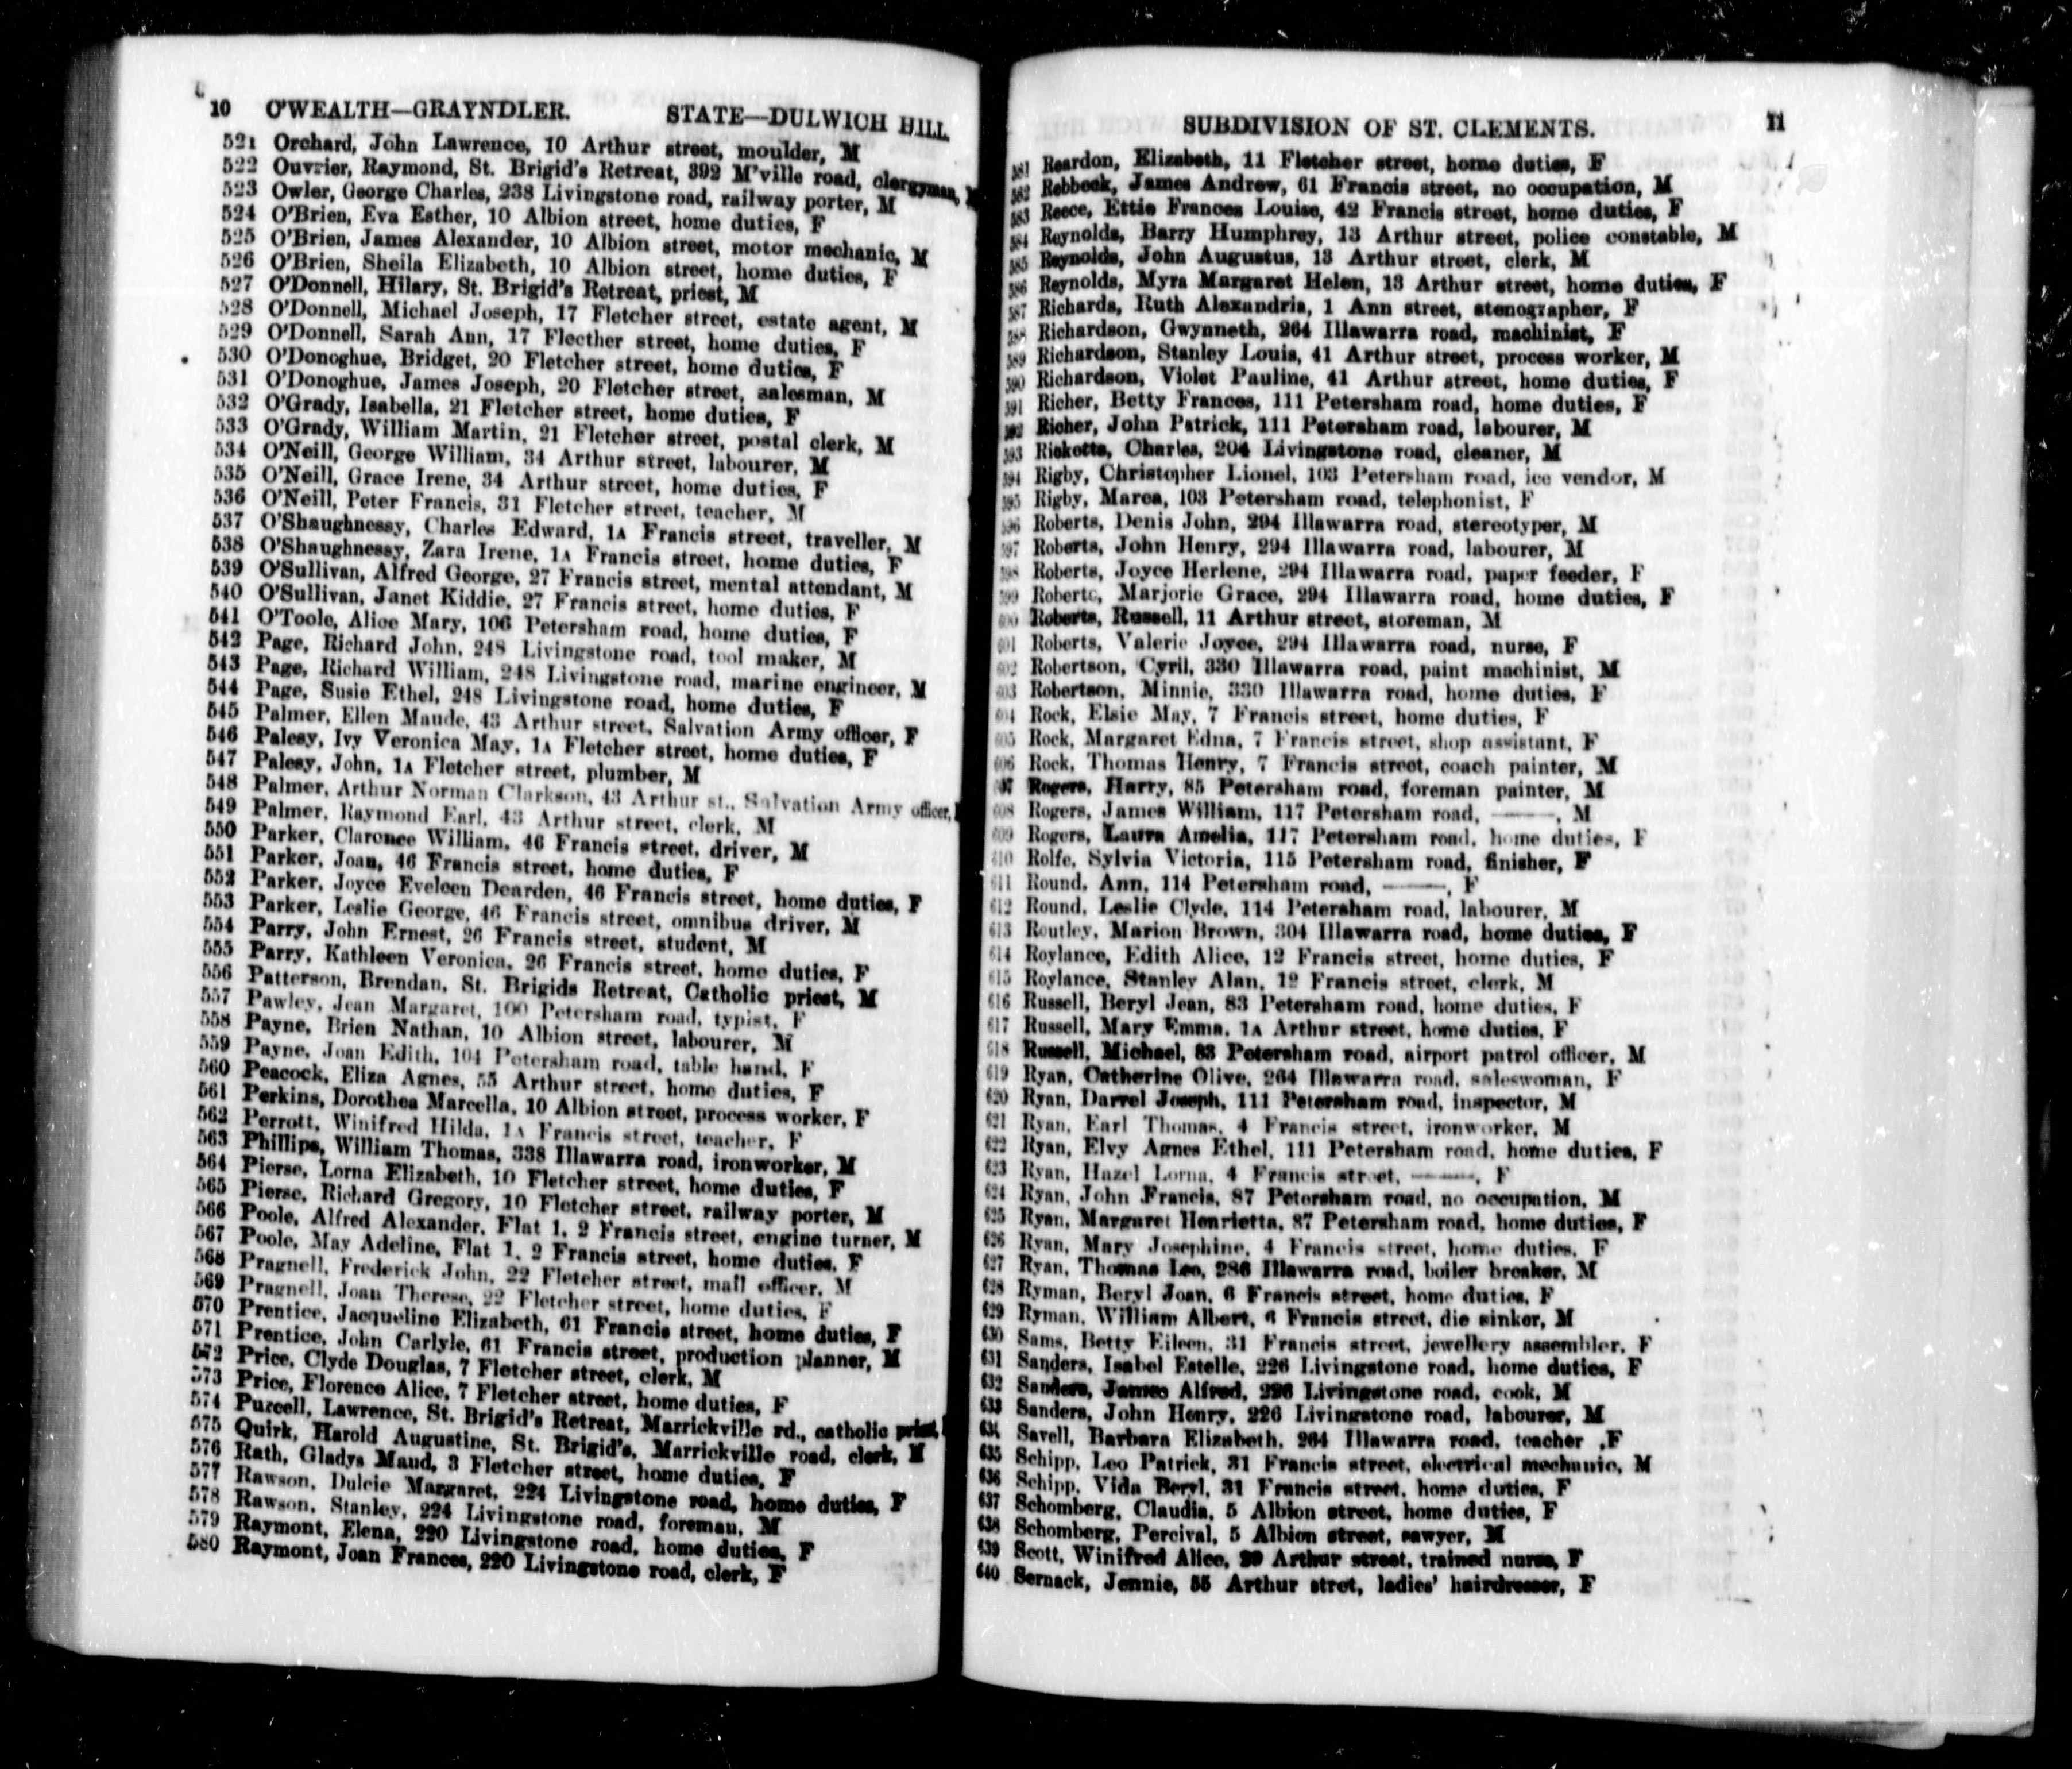 10 O'WEALTH—GRAYNDLER. STATE—DULWICH HILL
521 Orchard, John Lawrence, 10 Arthur street, moulder, M
522 Ouvrier, Raymond, St. Brigid's Retreat, 392 M'ville road, clergyman,
523 Owler, George Charles, 238 Livingstone road, railway porter, M
524 O'Brien, Eva Esther, 10 Albion street, home duties, F
525 O'Brien, James Alexander, 10 Albion street, motor mechanic, M
526 O'Brien, Sheila Elizabeth, 10 Albion street, home duties, F
527 O'Donnell, Hilary, St. Brigid's Retreat, priest, M
528 O'Donnell, Michael Joseph, 17 Fletcher street, estate agent, M
529 O'Donnell, Sarah Ann, 17 Flecther street, home duties, F
530 O'Donoghue, Bridget, 20 Fletcher street, home duties, F
531 O'Donoghue, James Joseph, 20 Fletcher street, salesman, M
532 O'Grady, Isabella, 21 Fletcher street, home duties, F
533 O'Grady, William Martin, 21 Fletcher street, postal clerk, M
534 O'Neill, George William, 34 Arthur street, labourer, M
535 O'Neill, Grace Irene, 34 Arthur street, home duties, F
536 O'Neill, Peter Francis, 31 Fletcher street, teacher, M
537 O'Shaughnessy, Charles Edward, 1A Francis street, traveller, M
538 O'Shaughnessy, Zara Irene, 1A Francis street, home duties, F
539 O'Sullivan, Alfred George, 27 Francis street, mental attendant, M
540 O'Sullivan, Janet Kiddie, 27 Francis street, home duties, F
541 O'Toole, Alice Mary, 106 Petersham road, home duties, F
542 Page, Richard John, 248 Livingstone road, tool maker, M
543 Page, Richard William, 248 Livingstone road, marine engineer, M
544 Page, Susie Ethel, 248 Livingstone road, home duties, F
545 Palmer, Ellen Maude, 43 Arthur street, Salvation Army officer, F
546 Palesy, Ivy Veronica May, 1A Fletcher street, home duties, F
547 Palesy, John, 1A Fletcher street, plumber, M
548 Palmer, Arthur Norman Clarkson, 43 Arthur st., Salvation Army officer,
549 Palmer, Raymond Earl, 43 Arthur street, clerk, M
550 Parker, Clarence William, 46 Francis street, driver, M
551 Parker, Joan, 46 Francis street, home duties, F
552 Parker, Joyce Eveleen Dearden, 46 Francis street, home duties, F
553 Parker, Leslie George, 46 Francis street, omnibus driver, M
554 Parry, John Ernest, 26 Francis street, student, M
555 Parry, Kathleen Veronica, 26 Francis street, home duties, F
556 Patterson, Brendan, St. Brigids Retreat, Catholic priest, M
557 Pawley, Jean Margaret, 100 Petersham road, typist, F
558 Payne, Brien Nathan, 10 Albion street, labourer, M
559 Payne, Joan Edith, 104 Petersham road, table hand, F
560 Peacock, Eliza Agnes, 55 Arthur street, home duties, F
561 Perkins, Dorothea Marcella, 10 Albion street, process worker, F
562 Perrott, Winifred Hilda, 1A Francis street, teacher, F
563 Phillips, William Thomas, 338 Illawarra road, ironworker, M
564 Pierse, Lorna Elizabeth, 10 Fletcher street, home duties, F
565 Pierse, Richard Gregory, 10 Fletcher street, railway porter, M
566 Poole, Alfred Alexander, Flat 1, 2 Francis street, engine turner, M
567 Poole, May Adeline, Flat 1, 2 Francis street, home duties, F
568 Pragnell, Frederick John, 22 Fletcher street, mail officer, M
569 Pragnell, Joan Therese, 22 Fletcher street, home duties, F
570 Prentice, Jacqueline Elizabeth, 61 Francis street, home duties, F
571 Prentice, John Carlyle, 61 Francis street, production planner, M
572 Price, Clyde Douglas, 7 Fletcher street, clerk, M
573 Price, Florence Alice, 7 Fletcher street, home duties, F
574 Purcell, Lawrence, St. Brigid's Retreat, Marrickville rd., catholic priest,
575 Quirk, Harold Augustine, St. Brigid's, Marrickville road, clerk, M
576 Rath, Gladys Maud, 3 Fletcher street, home duties, F
577 Rawson, Dulcie Margaret, 224 Livingstone road, home duties, F
578 Rawson, Stanley, 224 Livingstone road, foreman, M
579 Raymont, Elena, 220 Livingstone road, home duties, F
580 Raymont, Joan Frances, 220 Livingstone road, clerk, F
SUBDIVISION OF ST. CLEMENTS. 11
581 Reardon, Elizabeth, 11 Fletcher street, home duties, F
582 Rebbeck, James Andrew, 61 Francis street, no occupation, M
583 Reece, Ettie Frances Louise, 42 Francis street, home duties, F
584 Reynolds, Barry Humphrey, 13 Arthur street, police constable, M
585 Reynolds, John Augustus, 13 Arthur street, clerk, M
586 Reynolds, Myra Margaret Helen, 13 Arthur street, home duties, F
587 Richards, Ruth Alexandria, 1 Ann street, stenographer, F
588 Richardson, Gwynneth, 264 Illawarra road, machinist, F
589 Richardson, Stanley Louis, 41 Arthur street, process worker, M
590 Richardson, Violet Pauline, 41 Arthur street, home duties, F
591 Richer, Betty Frances, 111 Petersham road, home duties, F
592 Richer, John Patrick, 111 Petersham road, labourer, M
593 Ricketts, Charles, 204 Livingstone road, cleaner, M
594 Rigby, Christopher Lionel, 103 Petersham road, ice vendor, M
595 Rigby, Marea, 103 Petersham road, telephonist, F
596 Roberts, Denis John, 294 Illawarra road, stereotyper, M
597 Roberts, John Henry, 294 Illawarra road, labourer, M
598 Roberts, Joyce Herlene, 294 Illawarra road, paper feeder, F
599 Roberts, Marjorie Grace, 294 Illawarra road, home duties, F
600 Roberts, Russell, 11 Arthur street, storeman, M
601 Roberts, Valerie Joyce, 294 Illawarra road, nurse, F
602 Robertson, Cyril, 330 Illawarra road, paint machinist, M
603 Robertson, Minnie, 330 Illawarra road, home duties, F
604 Rock, Elsie May, 7 Francis street, home duties, F
605 Rock, Margaret Edna, 7 Francis street, shop assistant, F
606 Rock, Thomas Henry, 7 Francis street, coach painter, M
607 Rogers, Harry, 85 Petersham road, foreman painter, M
608 Rogers, James William, 117 Petersham road, ———, M
609 Rogers, Laura Amelia, 117 Petersham road, home duties, F
610 Rolfe, Sylvia Victoria, 115 Petersham road, finisher, F
611 Round, Ann, 114 Petersham road, ———, F
612 Round, Leslie Clyde, 114 Petersham road, labourer, M
613 Routley, Marion Brown, 304 Illawarra road, home duties, F
614 Roylance, Edith Alice, 12 Francis street, home duties, F
615 Roylance, Stanley Alan, 12 Francis street, clerk, M
616 Russell, Beryl Jean, 83 Petersham road, home duties, F
617 Russell, Mary Emma, 1A Arthur street, home duties, F
618 Russell, Michael, 83 Petersham road, airport patrol officer, M
619 Ryan, Catherine Olive, 264 Illawarra road, saleswoman, F
620 Ryan, Darrel Joseph, 111 Petersham road, inspector, M
621 Ryan, Earl Thomas, 4 Francis street, ironworker, M
622 Ryan, Elvy Agnes Ethel, 111 Petersham road, home duties, F
623 Ryan, Hazel Lorna, 4 Francis street, ———, F
624 Ryan, John Francis, 87 Petersham road, no occupation, M
625 Ryan, Margaret Henrietta, 87 Petersham road, home duties, F
626 Ryan, Mary Josephine, 4 Francis street, home duties, F
627 Ryan, Thomas Leo, 286 Illawarra road, boiler breaker, M
628 Ryman, Beryl Joan, 6 Francis street, home duties, F
629 Ryman, William Albert, 6 Francis street, die sinker, M
630 Sams, Betty Eileen, 31 Francis street, jewellery assembler, F
631 Sanders, Isabel Estelle, 226 Livingstone road, home duties, F
632 Sanders, James Alfred, 226 Livingstone road, cook, M
633 Sanders, John Henry, 226 Livingstone road, labourer, M
634 Savell, Barbara Elizabeth, 264 Illawarra road, teacher ,F
635 Schipp, Leo Patrick, 31 Francis street, electrical mechanic, M
636 Schipp, Vida Beryl, 31 Francis street, home duties, F
637 Schomberg, Claudia, 5 Albion street, home duties, F
638 Schomberg, Percival, 5 Albion street, sawyer, M
639 Scott, Winifred Alice, 29 Arthur street, trained nurse, F
640 Sernack, Jennie, 55 Arthur stret, ladies' hairdresser, F